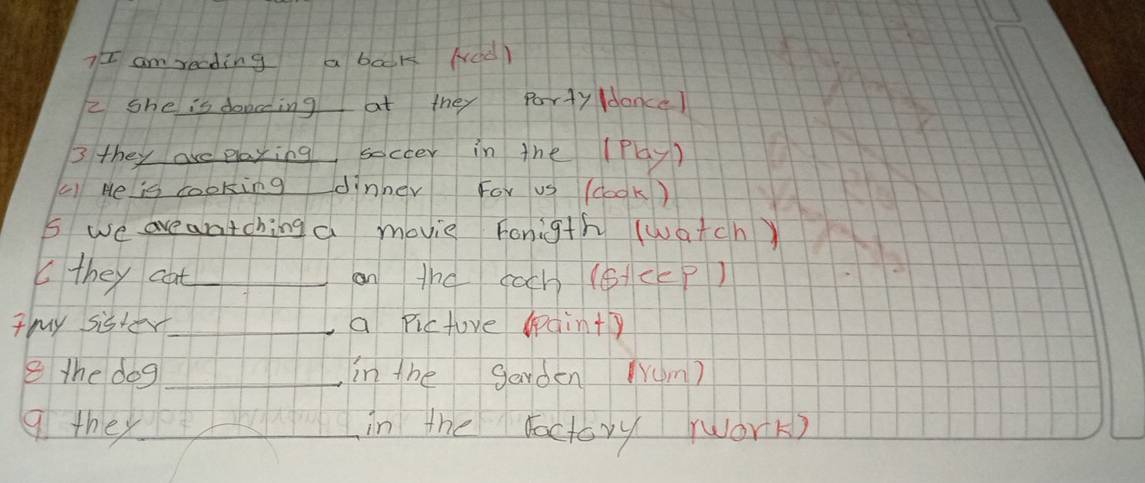 1 I am reading a book (red)
2 she is dancing at they Party (dance)
3 they are playing soccer in the (Play)
4) He is cooking dinner For us (cook)
5 we are watching a movie tonigth (watch)
6 they cat________ on the coch (Sleep)
7 my sister________ a Picture (paint)
8 the dog________ in the garden (rum)
9 they________ in the factory (work)